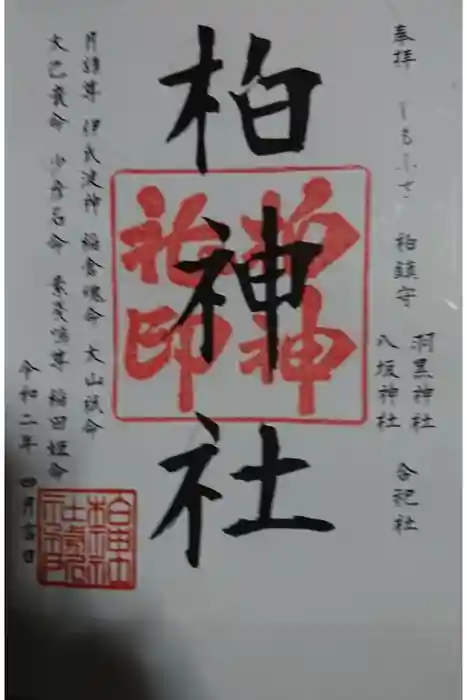 奉拝 しもふさ 柏鎮守
羽黒神社
八坂神社
合祀社
柏神社
柏神
社印
月讀尊 伊氐波神 稲倉魂命 大山祇命
大己貴命 少彦名命 素戔嗚尊 稲田姫命
令和二年 四月吉日